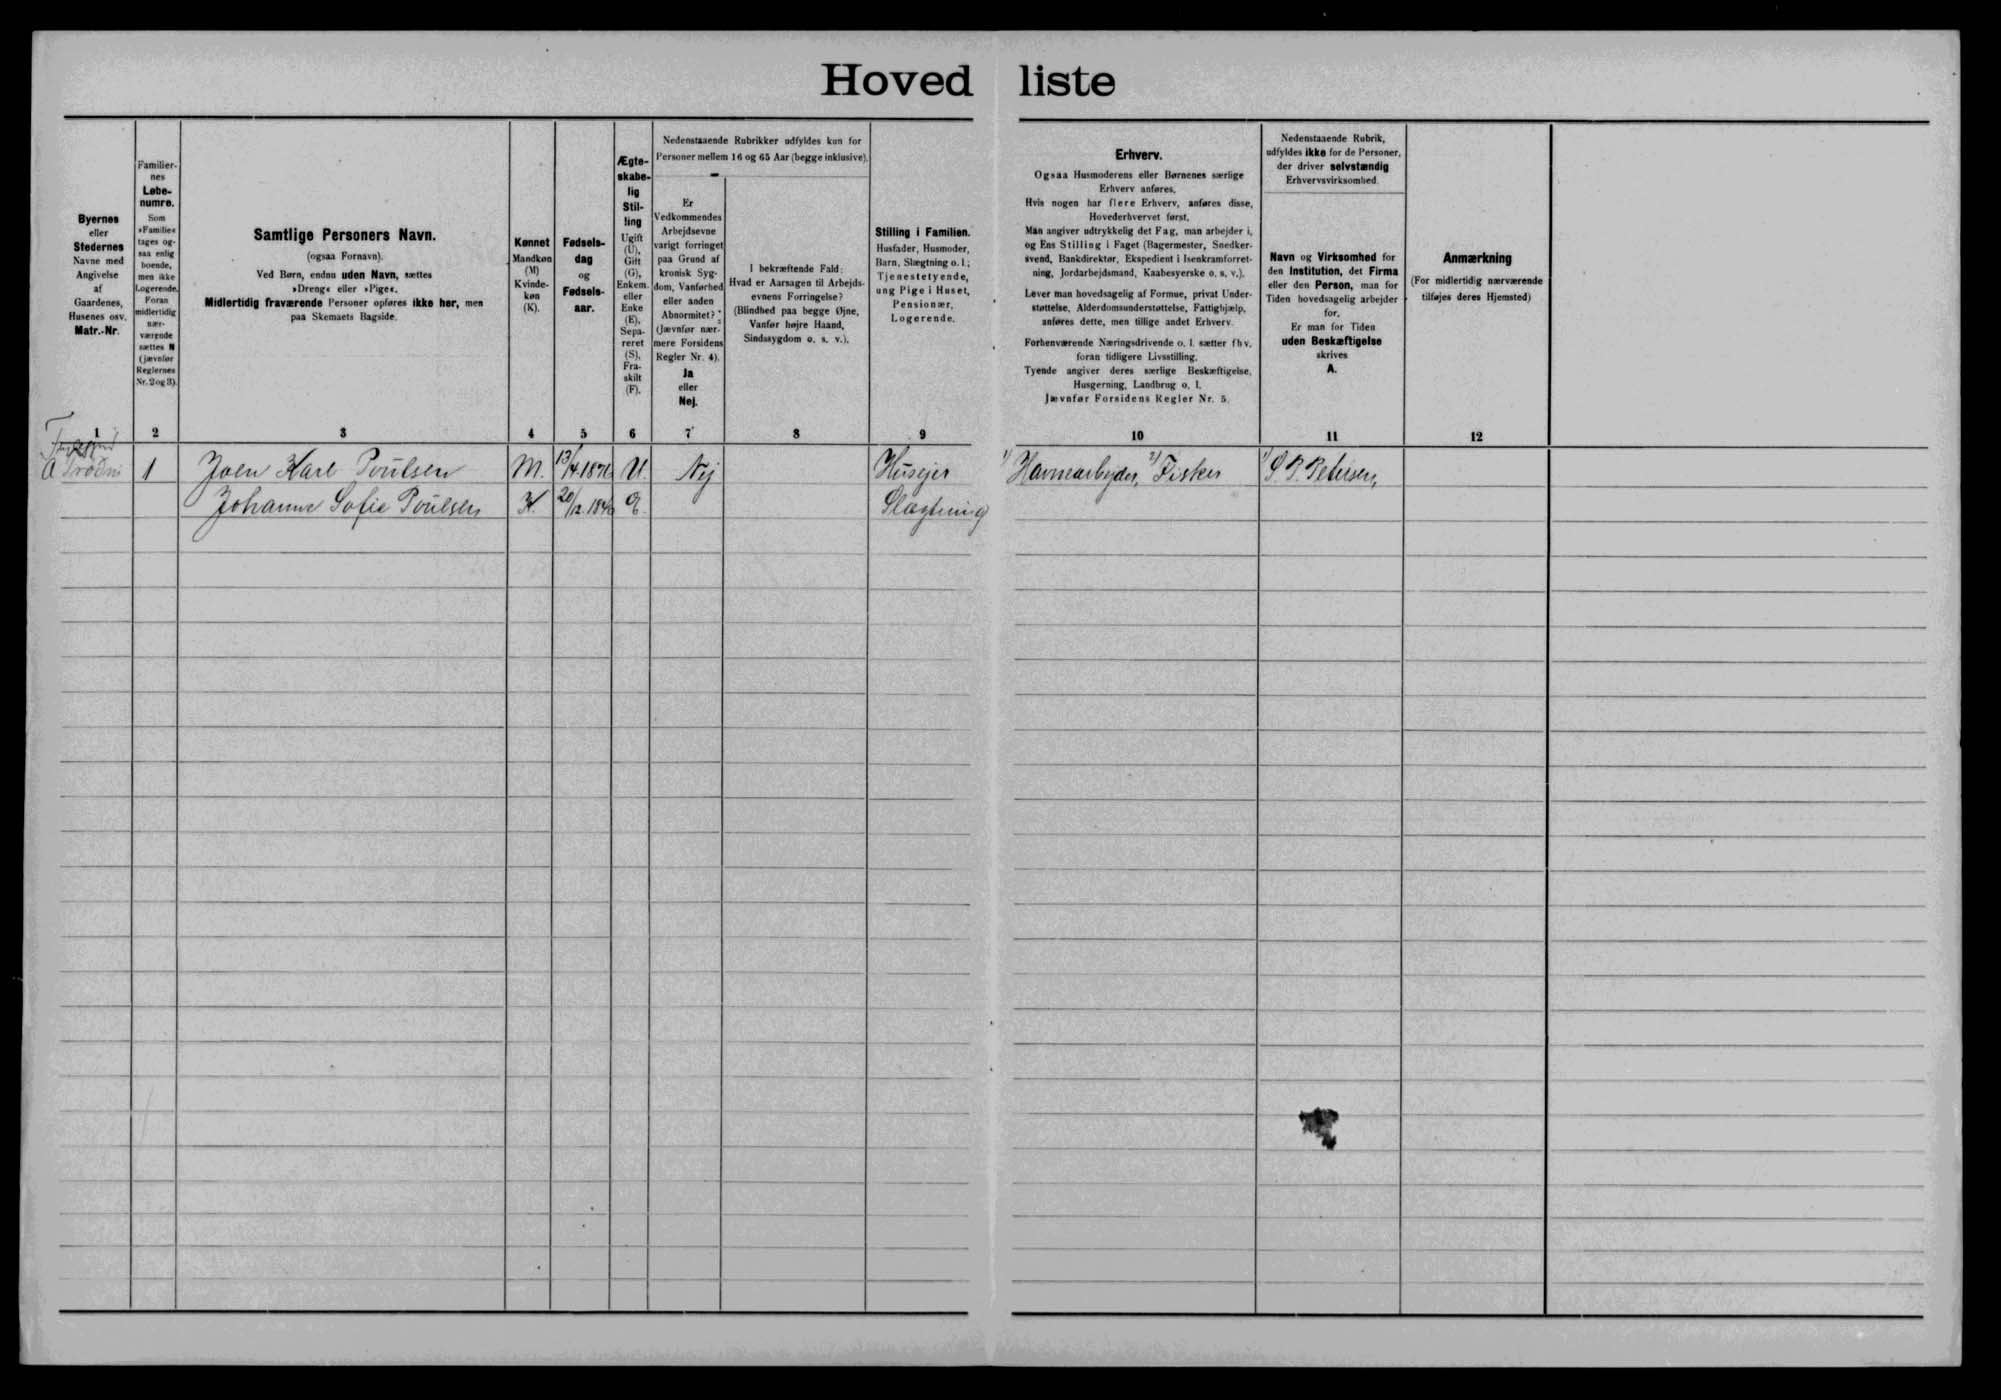 Hovedliste
Byernes
eller
Stedernes
Navne med
Angivelse
af
Gaardenes,
Husenes osv.
Matr.-Nr.
Familier-
nes
Løbe-
numre.
Som
»Familie«
tages og-
saa enlig
boende,
men ikke
Logerende.
Foran
midlertidig
nær-
værende
sættes N
(jævnfør
Reglernes
Nr. 2 og 3).
Samtlige Personers Navn.
(ogsaa Fornavn).
Ved Børn, endnu uden Navn, sættes
»Dreng« eller »Pige«.
Midlertidig fraværende Personer opføres ikke her, men
paa Skemaets Bagside.
Kønnet
Mandkøn
(M)
Kvinde-
køn
(K).
Fødsels-
dag
og
Fødsels-
aar.
Ægte-
skabe-
lig
Stil-
ling
Ugift
(U),
Gift
(G),
Enkem.
eller
Enke
(E),
Sepa-
reret
(S),
Fra-
skilt
(F).
Nedenstaaende Rubrikker udfyldes kun for
Personer mellem 16 og 65 Aar (begge inklusive).
Er
Vedkommendes
Arbejdsevne
varigt forringet
paa Grund af
kronisk Syg-
dom, Vanførhed
eller anden
Abnormitet?
(Jævnfør nær-
mere Forsidens
Regler Nr. 4).
Ja
eller
Nej.
I bekræftende Fald:
Hvad er Aarsagen til Arbejds-
evnens Forringelse?
(Blindhed paa begge Øjne,
Vanfør højre Haand,
Sindssygdom o. s. v.).
Stilling i Familien.
Husfader, Husmoder,
Barn, Slægtning o. l.;
Tjenestetyende,
ung Pige i Huset,
Pensionær,
Logerende.
Erhverv.
Ogsaa Husmoderens eller Børnenes særlige
Erhverv anføres.
Hvis nogen har flere Erhverv, anføres disse,
Hovederhvervet først.
Man angiver udtrykkelig det Fag, man arbejder i,
og Ens Stilling i Faget (Bagermester, Snedker-
svend, Bankdirektør, Ekspedient i Isenkramforret-
ning, Jordarbejdsmand, Kaabesyerske o. s. v.).
Lever man hovedsagelig af Formue, privat Under-
støttelse, Alderdomsunderstøttelse, Fattighjælp,
anføres dette, men tillige andet Erhverv.
Forhenværende Næringsdrivende o. l. sætter fhv.
foran tidligere Livsstilling.
Tyende angiver deres særlige Beskæftigelse,
Husgerning, Landbrug o. l.
Jævnfør Forsidens Regler Nr. 5.
Nedenstaaende Rubrik,
udfyldes ikke for de Personer,
der driver selvstændig
Erhvervsvirksomhed.
Navn og Virksomhed for
den Institution, det Firma
eller den Person, man for
Tiden hovedsagelig arbejder
for.
Er man for Tiden
uden Beskæftigelse
skrives
A.
Anmærkning
(For midlertidig nærværende
tilføjes deres Hjemsted)
1 2 3 4 5 6 7 8 9 10 11 12
1 Joen Karl Poulsen M. 13/4 1876 U. Nej Husejer 1) Havnearbejder, 2) Fisker 1) S. P. Petersen,
Johanne Sofie Poulsen K. 20/12. 1846 E. Slægtning